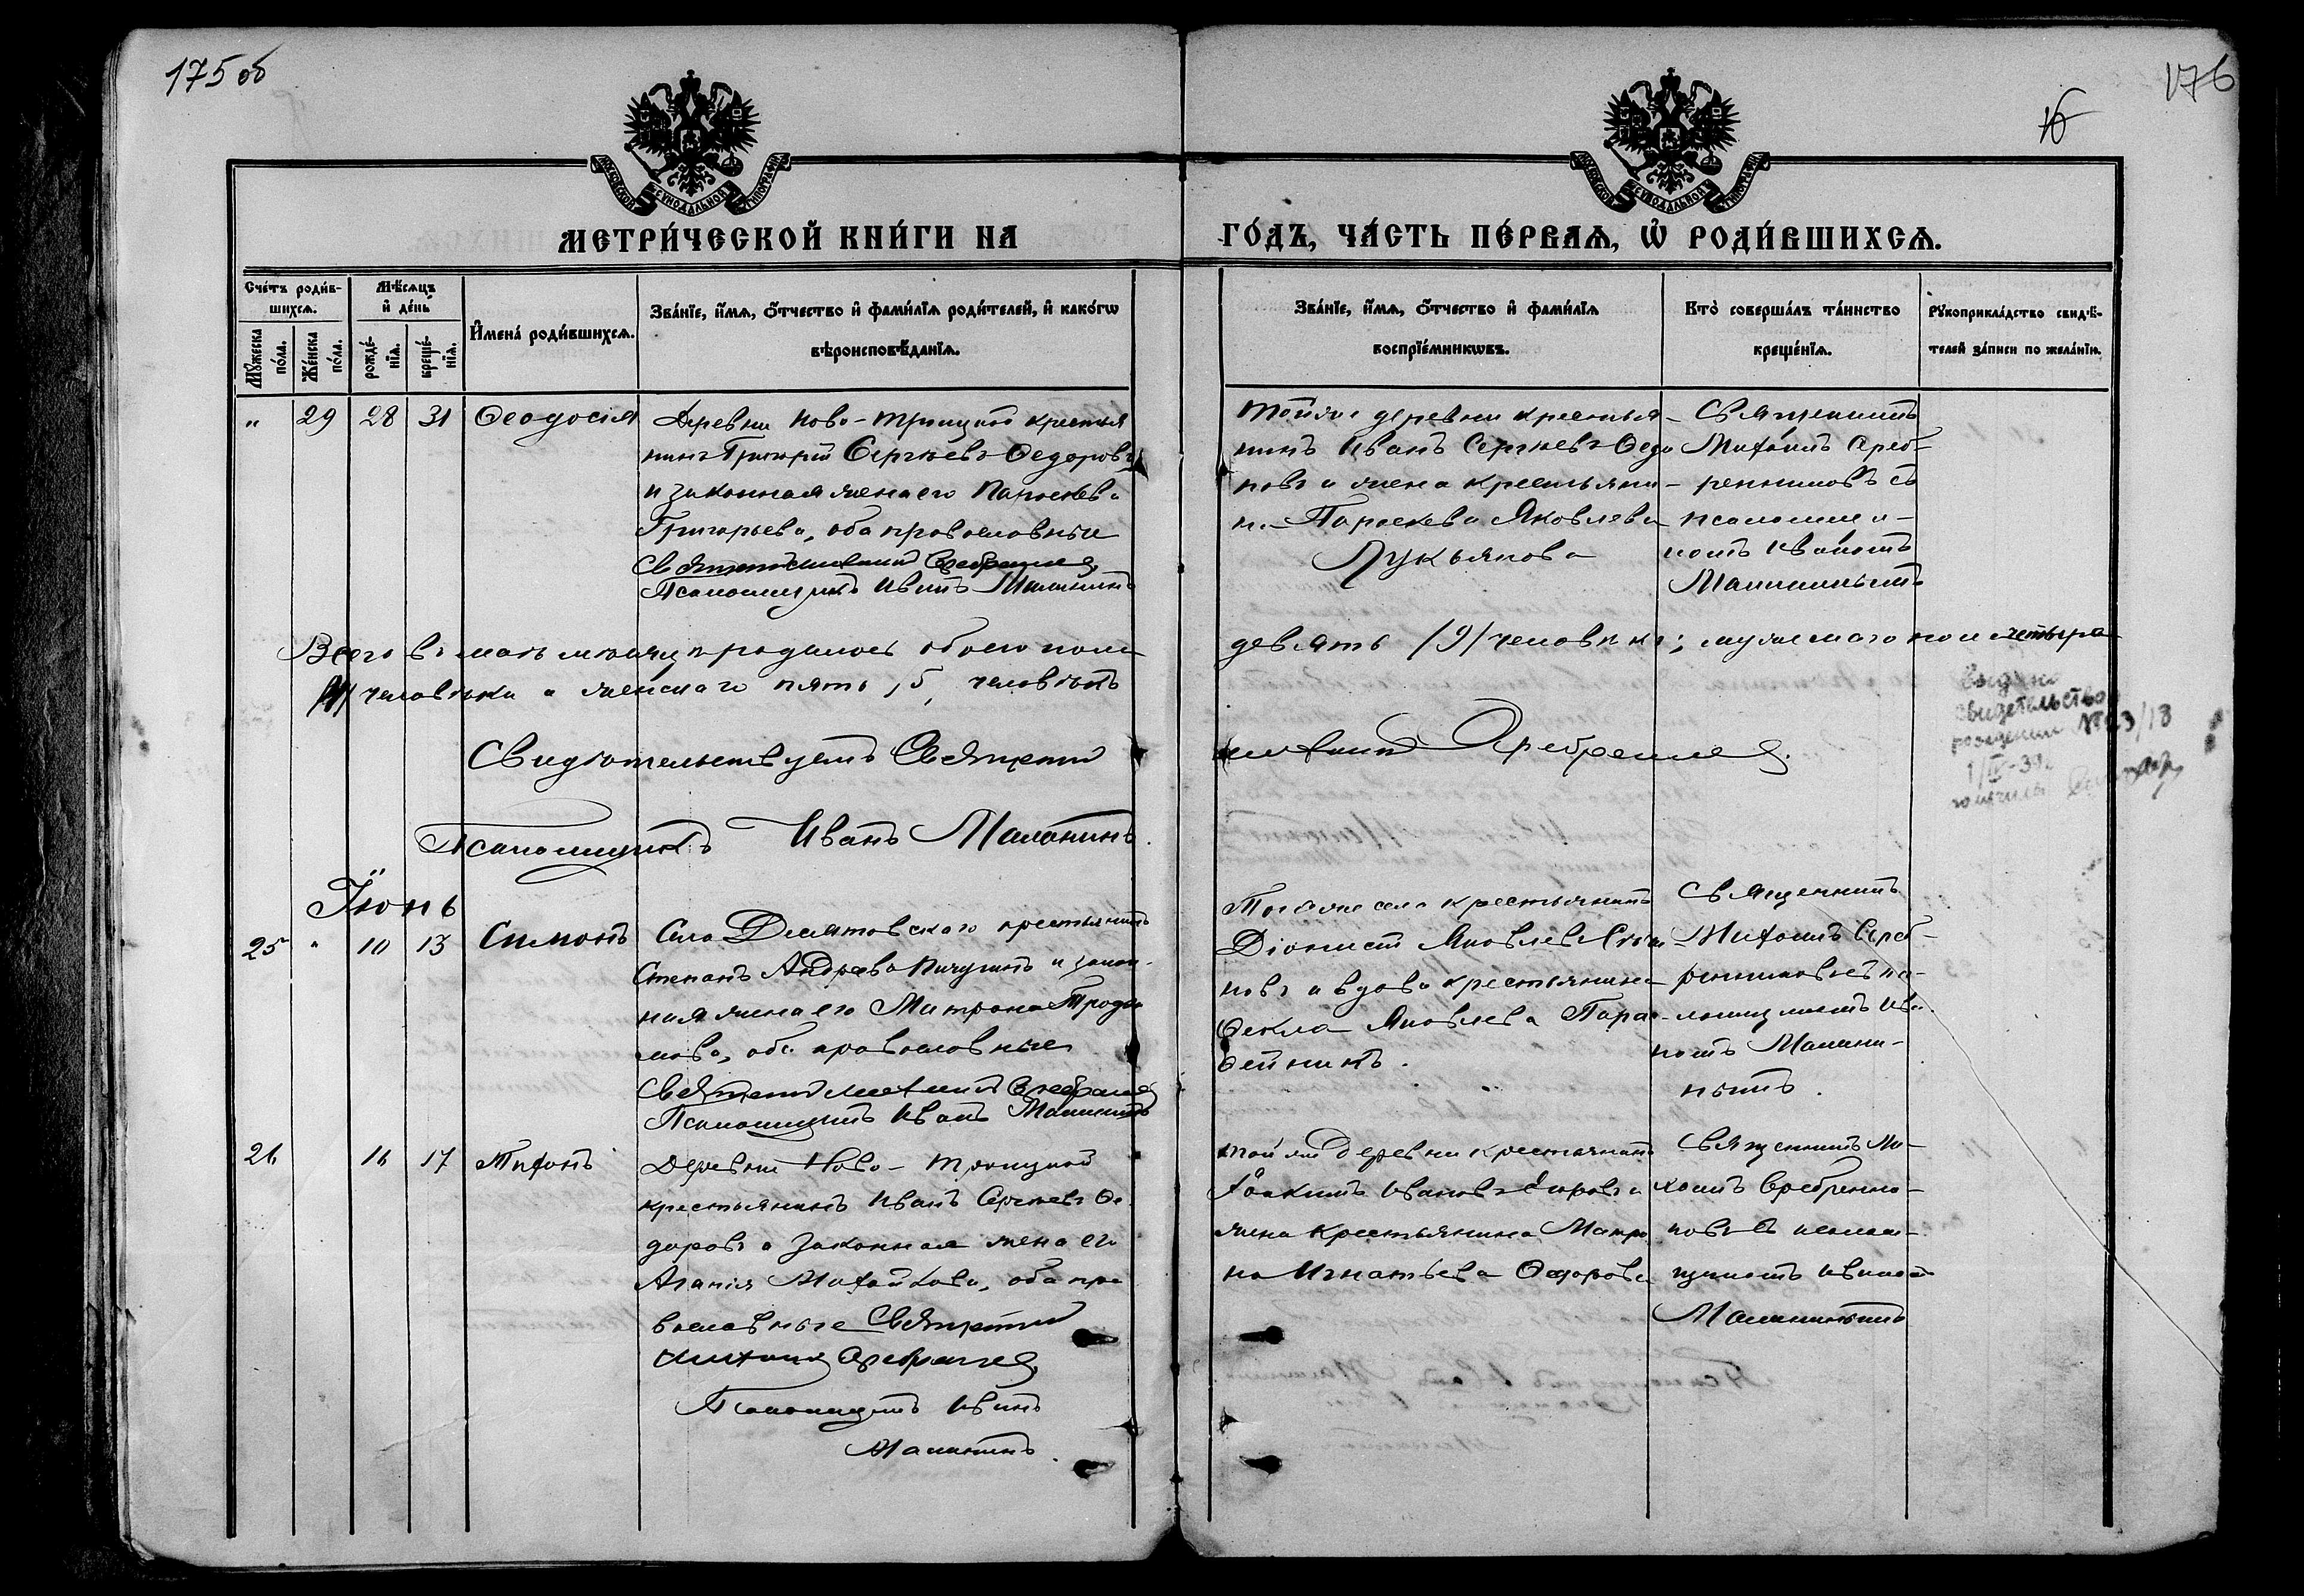 175 об
176
МОСКОВСКОЙ СѴНОДАЛЬНОЙ ТИПОГРАФІИ
МОСКОВСКОЙ СѴНОДАЛЬНОЙ ТИПОГРАФІИ
МЕТРИ́ЧЕСКОЙ КНИ́ГИ НА
ГО́ДЪ, ЧА́СТЬ ПЕ́РВАѦ, Ѡ҆ РОДИ́ВШИХСѦ.
Сче́тъ роди́в-
шихсѧ.
Мѣ́сѧцъ
и҆ де́нь
Мꙋ́жеска по́ла.
Же́нска по́ла.
рожде́-
нїѧ.
креще́-
нїѧ.
И҆мена̀ роди́вшихсѧ.
Зва́нїе, и҆́мѧ, ѻ҆́тчество и҆ фами́лїѧ роди́телей, и҆ како́гѡ
вѣроисповѣ́данїѧ.
Зва́нїе, и҆́мѧ, ѻ҆́тчество и҆ фами́лїѧ
воспрїе́мникѡвъ.
Кто̀ соверша́лъ та́инство
креще́нїѧ.
Рꙋкоприкла́дство свидѣ́-
телей за́писи по жела́нїю.
" 29 28 31 Ѳеодосія
Деревни Ново-Троицкой крестья
нинъ Григорій Сергѣевъ Ѳедоровъ
и законная жена его Параскева
Григорьева, оба православные
Священникъ Михаилъ Серебренниковъ
Псаломщикъ Иванъ Маланинъ
тойже деревни крестья-
нинъ Иванъ Сергѣевъ Ѳедо
ровъ и жена крестьяни-
на Параскева Яковлева
Лукьянова
Священникъ
Михаилъ Сереб-
ренниковъ съ
псаломщи-
комъ Иваномъ
Маланинымъ
Всего въ маѣ мѣсяцѣ родилось обоего пола
девять /9/ человѣкъ; мужескаго пола четыре
/4/ человѣка а женскаго пять /5/ человѣкъ
Свидѣтельствуетъ Священникъ
Михаилъ Серебренниковъ
Псаломщикъ Иванъ Маланинъ.
Выдано
свидетельство
рождении № 23/13
Іюнь
25 " 10 13 Симонъ
Села Долматовскаго крестьянинъ
Степанъ Андреевъ Пичугинъ и закон-
ная жена его Матрона Трофи
мова, оба православные
Священникъ Михаилъ Серебренниковъ
Псаломщикъ Иванъ Маланинъ
Тогоже села крестьянинъ
Діонисій Яковлевъ
новъ и вдова крестьянина
Ѳекла Яковлева
Священникъ
Михаилъ Сереб-
ренниковъ съ пса-
ломщикомъ Ива-
номъ Малани-
нымъ.
26 16 17 Тихонъ
Деревни Ново-Троицкой
крестьянинъ Иванъ Сергѣевъ Ѳе
доровъ и законная жена его
Агапія Михайлова, оба пра
вославные Священникъ
Михаилъ Серебренниковъ
Псаломщикъ Иванъ
Маланинъ.
той же деревни крестьянинъ
Іоакимъ Ивановъ и
жена крестьянина Матро
на Игнатьева Ѳедорова
Священникъ Ми-
хаилъ Серебренни-
ковъ съ псалом-
щикомъ Иваномъ
Маланинымъ